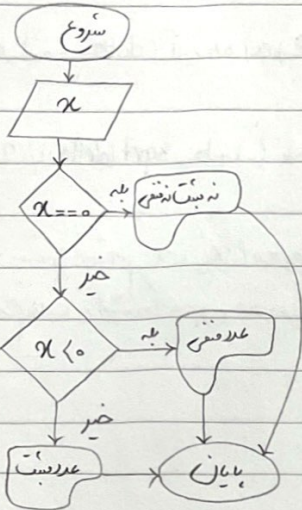 شروع
x
x==0
بله
نه مثبت نه منفی
خیر
x<0
بله
عدد منفی
خیر
عدد مثبت
پایان